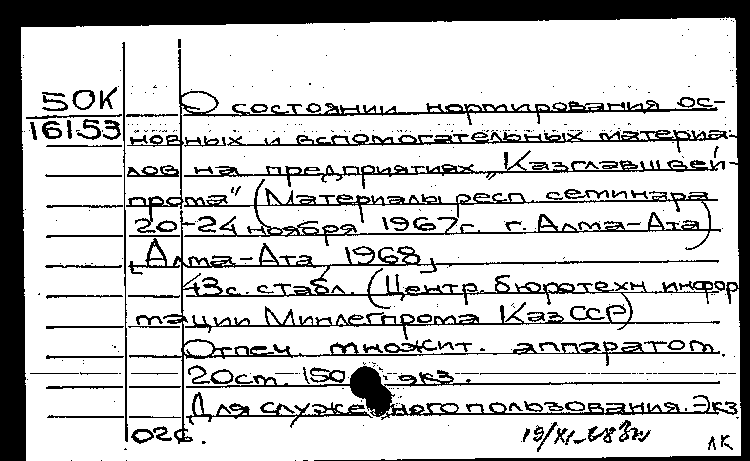 50К О состоянии нормирования ос-
16153 новных и вспомогательных материа-
лов на предприятиях „Казглавшвей-
прома" (Материалы респ семинара
20-24 ноября 1967г. г. Алма-Ата)
[Алма-Ата, 1968]
43с. с табл. (Центр. бюро техн инфор
мации Минлегпрома КазССР)
Отпеч. множит. аппаратом.
20см. 150 экз.
Для служебного пользования. Экз
026.
ЛК